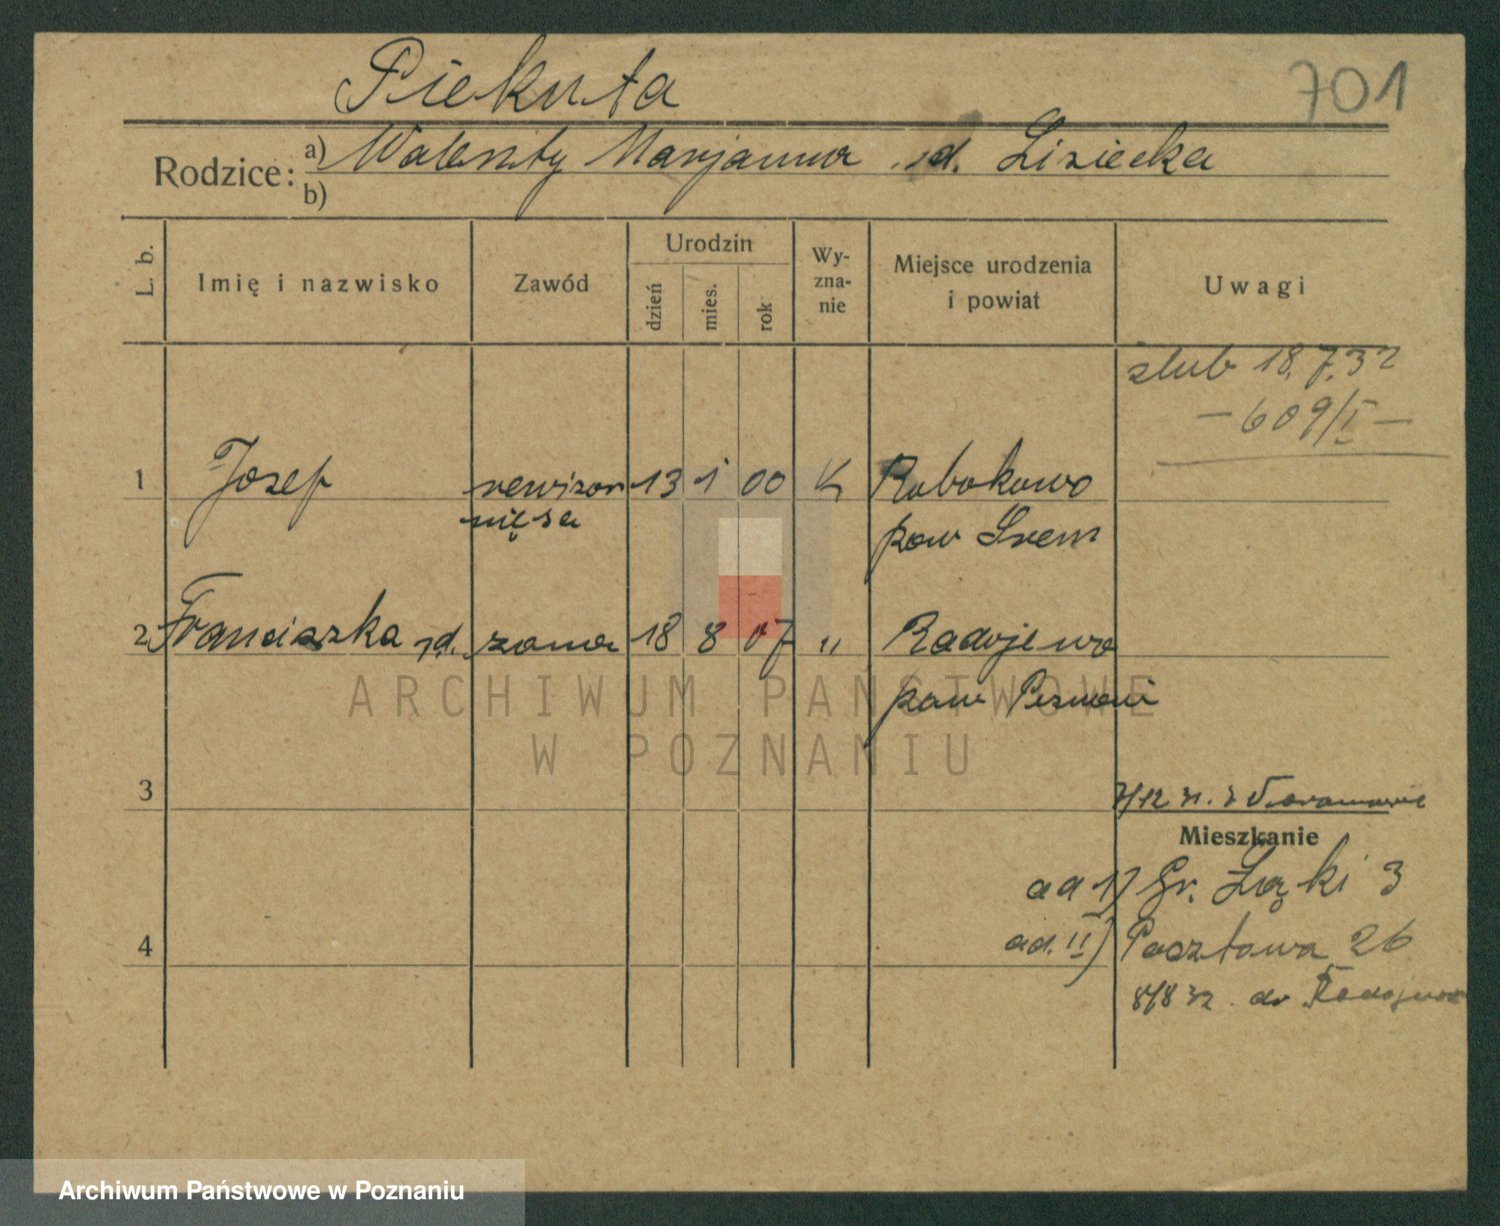 Piekuta
701
Rodzice: a) Walenty Marjanna zd. Lisiecka
b)
L. b. Imię i nazwisko Zawód Urodzin dzień mies. rok Wy-zna-nie Miejsce urodzenia i powiat Uwagi
ślub 18.7.32
– 609/I –
1 Jozef rewizor 13 1 00 K Robakowo
mięsa pow Śrem
2 Franciszka zd. żona 18 8 07 " Radojewo
pow Poznań
ARCHIWUM PAŃSTWOWE
W POZNANIU
3
Mieszkanie
ad 1) Gr. Łąki 3
4 ad. II) Pocztowa 26
8/8 32. do Radojewo
Archiwum Państwowe w Poznaniu